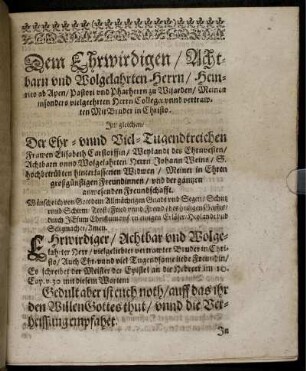 Dem Ehrwirdigen / Acht-
barn vnd Wolgelahrten Herrn / Hein-
rico ab Apen / Pastori vnd Pfarherrn zu Witzarden / Meinem
insonders vielgeehrten Herrn Collegæ vnnd vertraw-
ten MitBruder in Christo.
Im gleichen /
Der Ehr- vnnd Viel-Tugendtreichen
Frawen Elisabeth / Weylandt des Ehrwesten /
Achtbarn vnnd Wolgelahrten Herrn Johann Weins / S.
hochbetrübten hinterlassenen Widwen / Meiner in Ehren
großgünstigen Freundinnen / vnd der gantzen
anwesenden Freundschafft.
Wünsche ich von Gott dem Allmächtigen Gnadt vnd Segen / Schutz
vnnd Schirm / Trost / Fried vnd Frewd in der heiligen Geistes /
durch JEsum Christum vnsern einigen Erlöser / Heylandt vnd
Seligmacher / Amen.
EHrwirdiger / Achtbar vnd Wolge-
lahrter Herr / vielgeliebter vertrawter Bruder in Chri-
sto / Auch Ehr- vnnd viel Tugendsame liebe Freundin /
Es schreibet der Meister der Epistel an die Hebreer im 10.
Cap. v. 30 mit diesem Worten:
Gedult aber ist euch noth / auff das ihr
den Willen Gottes thut / vnnd die Ver-
heissung empfahet.
In